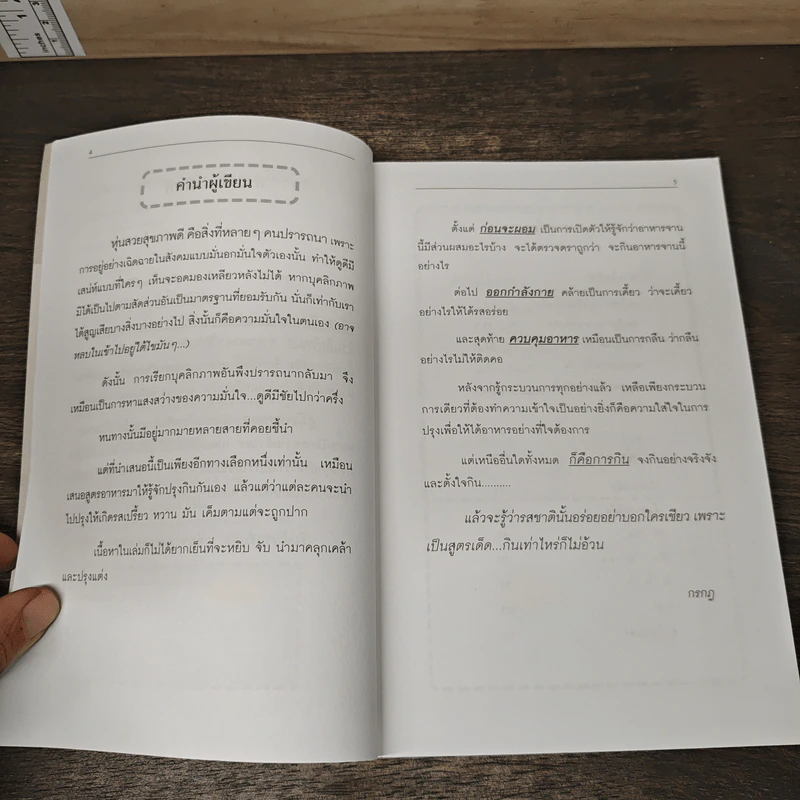 4
คำนำผู้เขียน
หุ่นสวยสุขภาพดี คือสิ่งที่หลายๆ คนปรารถนา เพราะ
การอยู่อย่างเฉิดฉายในสังคมแบบมั่นอกมั่นใจตัวเองนั้น ทำให้ดูดีมี
เสน่ห์แบบที่ใครๆ เห็นจะอดมองเหลียวหลังไม่ได้ หากบุคลิกภาพ
มิได้เป็นไปตามสัดส่วนอันเป็นมาตรฐานที่ยอมรับกัน นั่นก็เท่ากับเรา
ได้สูญเสียบางสิ่งบางอย่างไป สิ่งนั้นก็คือความมั่นใจในตนเอง (อาจ
หลบในเข้าไปอยู่ใต้ไขมันๆ...)
ดังนั้น การเรียกบุคลิกภาพอันพึงปรารถนากลับมา จึง
เหมือนเป็นการหาแสงสว่างของความมั่นใจ...ดูดีมีชัยไปกว่าครึ่ง
หนทางนั้นมีอยู่มากมายหลายสายที่คอยชี้นำ
แต่ที่นำเสนอนี้เป็นเพียงอีกทางเลือกหนึ่งเท่านั้น เหมือน
เสนอสูตรอาหารมาให้รู้จักปรุงกินกันเอง แล้วแต่ว่าแต่ละคนจะนำ
ไปปรุงให้เกิดรสเปรี้ยว หวาน มัน เค็มตามแต่จะถูกปาก
เนื้อหาในเล่มก็ไม่ได้ยากเย็นที่จะหยิบ จับ นำมาคลุกเคล้า
และปรุงแต่ง
5
ตั้งแต่ ก่อนจะผอม เป็นการเปิดตัวให้รู้จักว่าอาหารจาน
นี้มีส่วนผสมอะไรบ้าง จะได้ตรวจตราถูกว่า จะกินอาหารจานนี้
อย่างไร
ต่อไป ออกกำลังกาย คล้ายเป็นการเคี้ยว ว่าจะเคี้ยว
อย่างไรให้ได้รสอร่อย
และสุดท้าย ควบคุมอาหาร เหมือนเป็นการกลืน ว่ากลืน
อย่างไรไม่ให้ติดคอ
หลังจากรู้กระบวนการทุกอย่างแล้ว เหลือเพียงกระบวน
การเดียวที่ต้องทำความเข้าใจเป็นอย่างยิ่งก็คือความใส่ใจในการ
ปรุงเพื่อให้ได้อาหารอย่างที่ใจต้องการ
แต่เหนืออื่นใดทั้งหมด ก็คือการกิน จงกินอย่างจริงจัง
และตั้งใจกิน.........
แล้วจะรู้ว่ารสชาตินั้นอร่อยอย่าบอกใครเชียว เพราะ
เป็นสูตรเด็ด...กินเท่าไหร่ก็ไม่อ้วน
กรกฎ